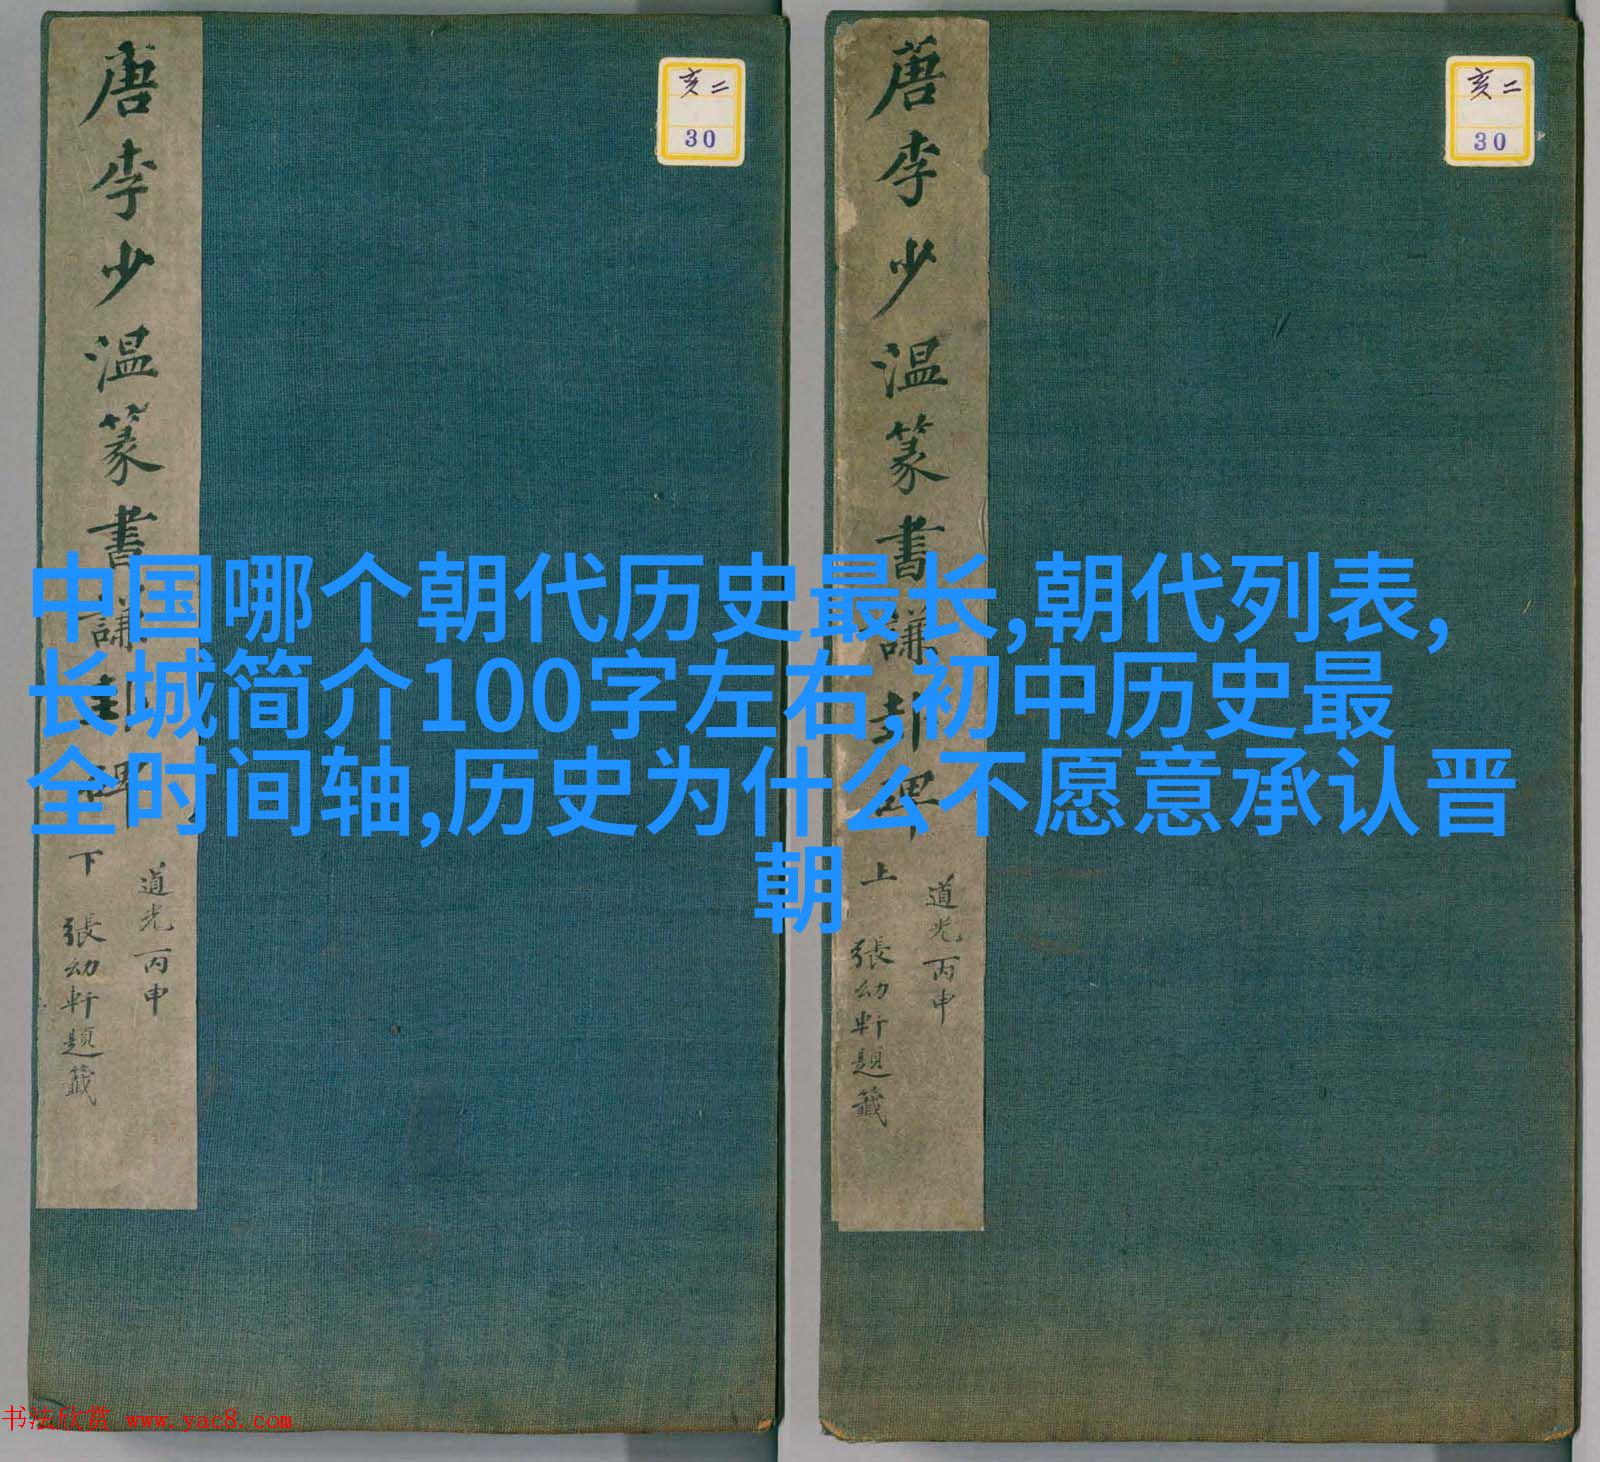 唐李少温篆書謙卦碑
下
道光丙申
張幼軒題籤
亥二
30
唐李少温篆書謙卦碑
上
道光丙申
張幼軒題籤
亥二
30
中国哪个朝代历史最长,朝代列表,
长城简介100字左右,初中历史最
全时间轴,历史为什么不愿意承认晋
朝
书法欣赏 www.yac8.com